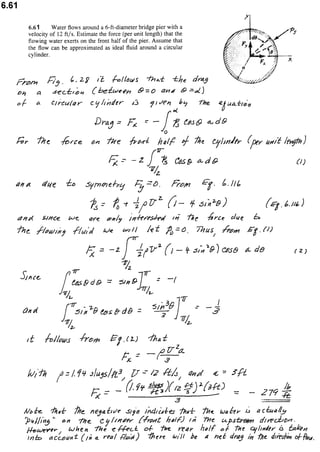 6.61
6.61 Water flows around a 6-ft-diameter bridge pier with a
velocity of 12 ft/s. Estimate the force (per unit length) that the
flowing water exerts on the front half of the pier. Assume that
the flow can be approximated as ideal fluid around a circular
cylinder.
y
Ps
Fy
a
θ
Fx
x
From Fig. 6.28 it follows that the drag
on a section (between θ = 0 and θ = α)
of a circular cylinder is given by the equation
Drag = Fx = - ∫₀^α ps cos θ a dθ
For the force on the front half of the cylinder (per unit length)
Fx = - 2 ∫_{π/2}^π ps cos θ a dθ (1)
and due to symmetry Fy = 0. From Eq. 6.116
ps = p₀ + ½ ρ U² (1 - 4 sin² θ) (Eq. 6.116)
and since we are only interested in the force due to
the flowing fluid we will let p₀ = 0. Thus, from Eq. (1)
Fx = - 2 ∫_{π/2}^π ½ ρ U² (1 - 4 sin² θ) cos θ a dθ (2)
Since,
∫_{π/2}^π cos θ dθ = sin θ ]_{π/2}^π = -1
and
∫_{π/2}^π sin² θ cos θ dθ = sin³ θ / 3 ]_{π/2}^π = - 1/3
it follows from Eq. (2) that
Fx = - ρ U² a / 3
With ρ = 1.94 slugs/ft³, U = 12 ft/s, and a = 3 ft
Fx = - (1.94 slugs/ft³)(12 ft/s)² (3 ft) / 3 = - 279 lb/ft
Note that the negative sign indicates that the water is actually
"pulling" on the cylinder (front half) in the upstream direction.
However, when the effect of the rear half of the cylinder is taken
into account (in a real fluid) there will be a net drag in the direction of flow.